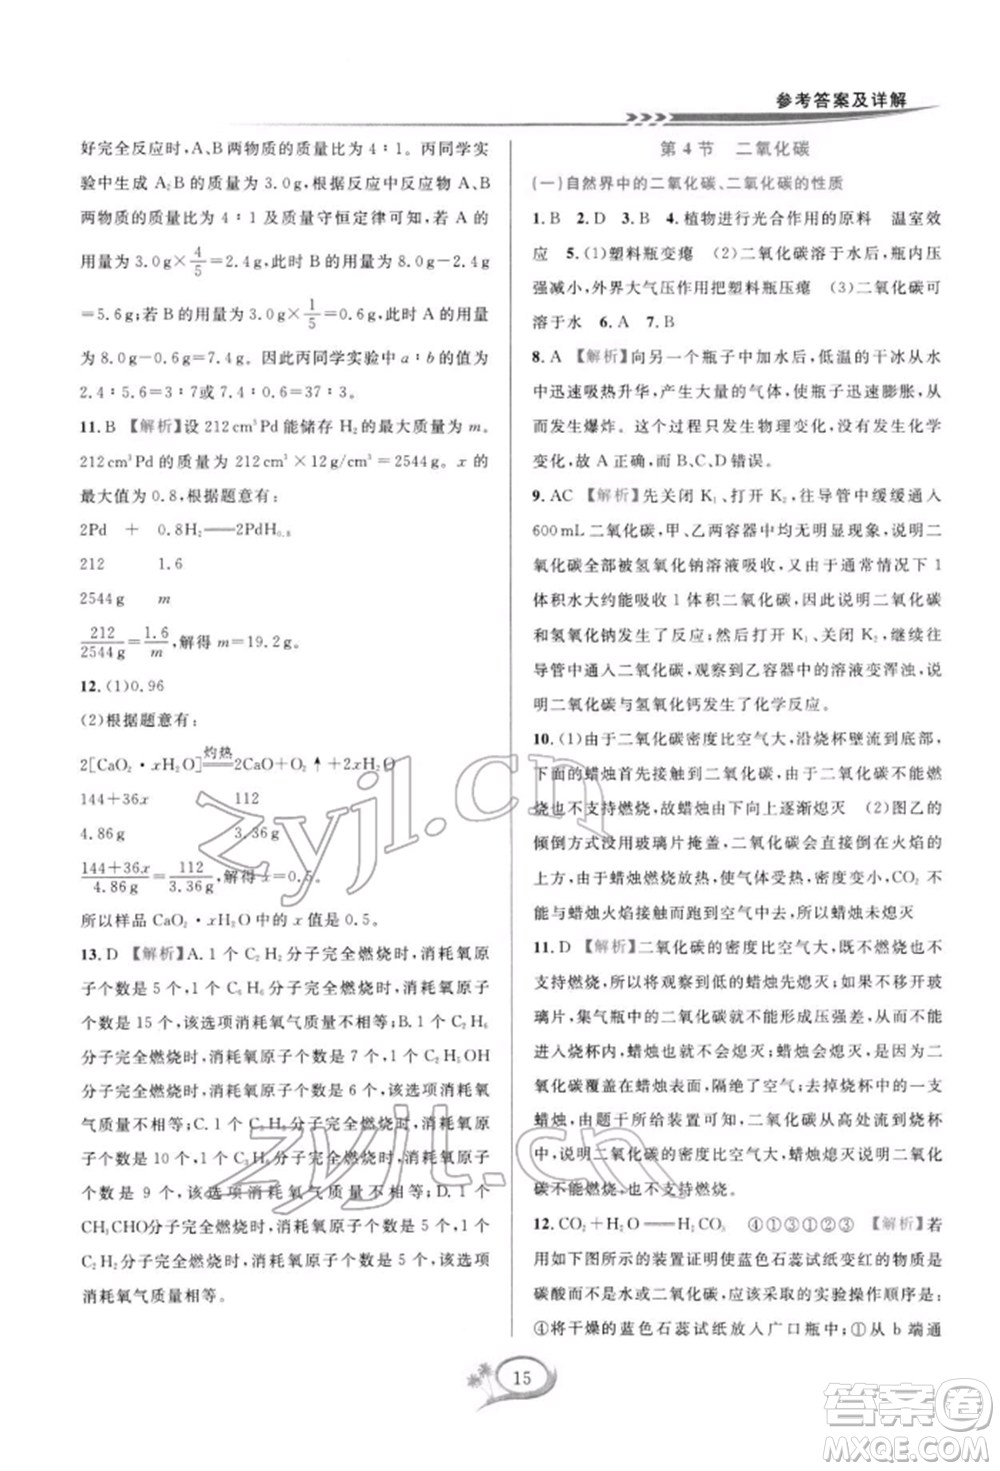 参考答案及详解
好完全反应时,A、B两物质的质量比为4∶1。丙同学实
验中生成A₂B的质量为3.0g,根据反应中反应的A、B
两物质的质量比为4∶1及质量守恒定律可知,若A的
用量为3.0g×4/5=2.4g,此时B的用量为8.0g-2.4g
=5.6g;若B的用量为3.0g×1/5=0.6g,此时A的用量为
8.0g-0.6g=7.4g。因此丙同学实验中a∶b的值为
2.4∶5.6=3∶7或7.4∶0.6=37∶3。
11.B 【解析】设212cm³Pd能储存H₂的最大质量为m。
212cm³Pd的质量为212cm³×12g/cm³=2544g。x的
最大值为0.8,根据题意有:
2Pd + 0.8H₂══2PdH₀.₈
212 1.6
2544g m
212/2544g=1.6/m,解得m=19.2g。
12.(1)0.96
(2)根据题意有:
2[CaO₂·xH₂O]══灼热══2CaO+O₂↑+2xH₂O
144+36x 112
4.86g 3.36g
144+36x/4.86g=112/3.36g,解得x=0.5。
所以样品CaO₂·xH₂O中的x值是0.5。
13.D 【解析】A.1个C₂H₂分子完全燃烧时,消耗氧原
子个数是5,1个C₆H₆分子完全燃烧时,消耗氧原子
个数是15个,该选项消耗氧气质量不相等;B.1个C₂H₆
分子完全燃烧时,消耗氧原子个数是7个,1个C₂H₅OH
分子完全燃烧时,消耗氧原子个数是6个,该选项消耗氧
气质量不相等;C.1个C₃H₈分子完全燃烧时,消耗氧原子
个数是10个,1个C₃H₆分子完全燃烧时,消耗氧原子个
数是9个,该选项消耗氧气质量不相等;D.1个
CH₃CHO分子完全燃烧时,消耗氧原子个数是5个,1个
C₂H₂分子完全燃烧时,消耗氧原子个数是5个,该选项
消耗氧气质量相等。
第4节 二氧化碳
(一)自然界中的二氧化碳、二氧化碳的性质
1.B 2.D 3.B 4.植物进行光合作用的原料 温室效
应 5.(1)塑料瓶变瘪 (2)二氧化碳溶于水后,瓶内压
强减小,外界大气压作用把塑料瓶压瘪 (3)二氧化碳可
溶于水 6.A 7.B
8.A 【解析】向另一个瓶子中加水后,低温的干冰从水
中迅速吸热升华,产生大量的气体,使瓶子迅速膨胀,从
而发生爆炸。这个过程只发生物理变化,没有发生化学
变化,故A正确,而B、C、D错误。
9.AC 【解析】先关闭K₁、打开K₂,往导管中缓缓通入
600mL二氧化碳,甲、乙两容器中均无明显现象,说明二
氧化碳全部被氢氧化钠溶液吸收,因为通常情况下1
体积水大约能吸收1体积二氧化碳,所以说明二氧化碳
和氢氧化钠发生了反应;然后打开K₁、关闭K₂,继续往
导管中通入二氧化碳,观察到乙容器中的溶液变浑浊,说
明二氧化碳与氢氧化钙发生了化学反应。
10.(1)由于二氧化碳密度比空气大,沿烧杯壁流到底部,
下面的蜡烛首先接触到二氧化碳,由于二氧化碳不能燃
烧也不支持燃烧,故蜡烛由下向上逐渐熄灭 (2)图乙的
倾倒方式没用玻璃片掩盖,二氧化碳会直接倒在火焰的
上方,由于蜡烛燃烧放热,使气流向上运动,CO₂不
能与蜡烛火焰接触或接触空气中去,所以蜡烛未熄灭
11.D 【解析】二氧化碳的密度比空气大,既不燃烧,也不
支持燃烧,所以将观察到的蜡烛先熄灭;如果不使用玻
璃片,集气瓶中的二氧化碳就不能形成压强差,从而不能
进入烧杯内,蜡烛也不会熄灭;蜡烛熄灭的原因是因为二
氧化碳覆盖在蜡烛表面,隔绝了空气;去掉烧杯中的一支
蜡烛,由题干所给装置可知,二氧化碳从高处流到烧杯
中,所以说明二氧化碳的密度比空气大,蜡烛熄灭说明二氧化
碳不能燃烧也不支持燃烧。
12.CO₂+H₂O══H₂CO₃ ④①③①②③ 【解析】若
用如下图所示的装置证明使蓝色石蕊试纸变红的物质是
碳酸而不是水或二氧化碳,应该采取的实验操作顺序是:
④将干燥的蓝色石蕊试纸放入广口瓶中;①从b端通
15
zyjl.cn
zyjl.cn
答案圈
MXQE.COM